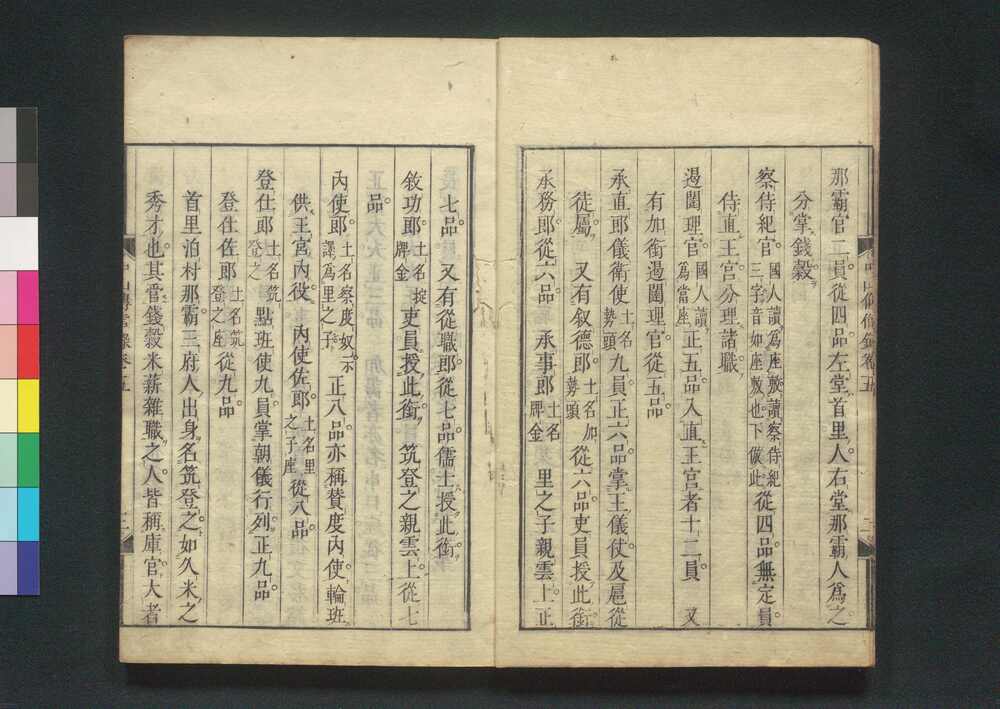 那霸官二員從四品左堂首里人右堂那霸人為之
分掌錢穀
察侍紀官 國人讀為座敷讀察侍紀三字音如座敷也下倣此 從四品無定員
侍直王宮分理諸職
遏闥理官 國人讀為當座 正五品入直王宮者十二員 又
有加銜遏闥理官從五品
承直郎儀衛使 土名勢頭 九員正六品掌王儀仗及扈從
徒屬 又有叙德郎 土名加勢頭 從六品吏員授此銜
承務郎從六品 承事郎 土名牌金 里之子親雲上正
七品 又有從職郎從七品儒士授此銜
敘功郎 土名掟牌金 吏員授此銜 筑登之親雲上從七
品
內使郎 土名察度奴示譯為里之子 正八品亦稱賛度內使輪班
供王宮內役 內使佐郎 土名里之子座 從八品
登仕郎 土名筑登之 點班使九員掌朝儀行列正九品
登仕佐郎 土名筑登之座 從九品
首里泊村那霸三府人出身名筑登之如久米之
秀才也其嘗錢穀米薪雜職之人皆稱庫官大者
中山傳信錄卷五
三